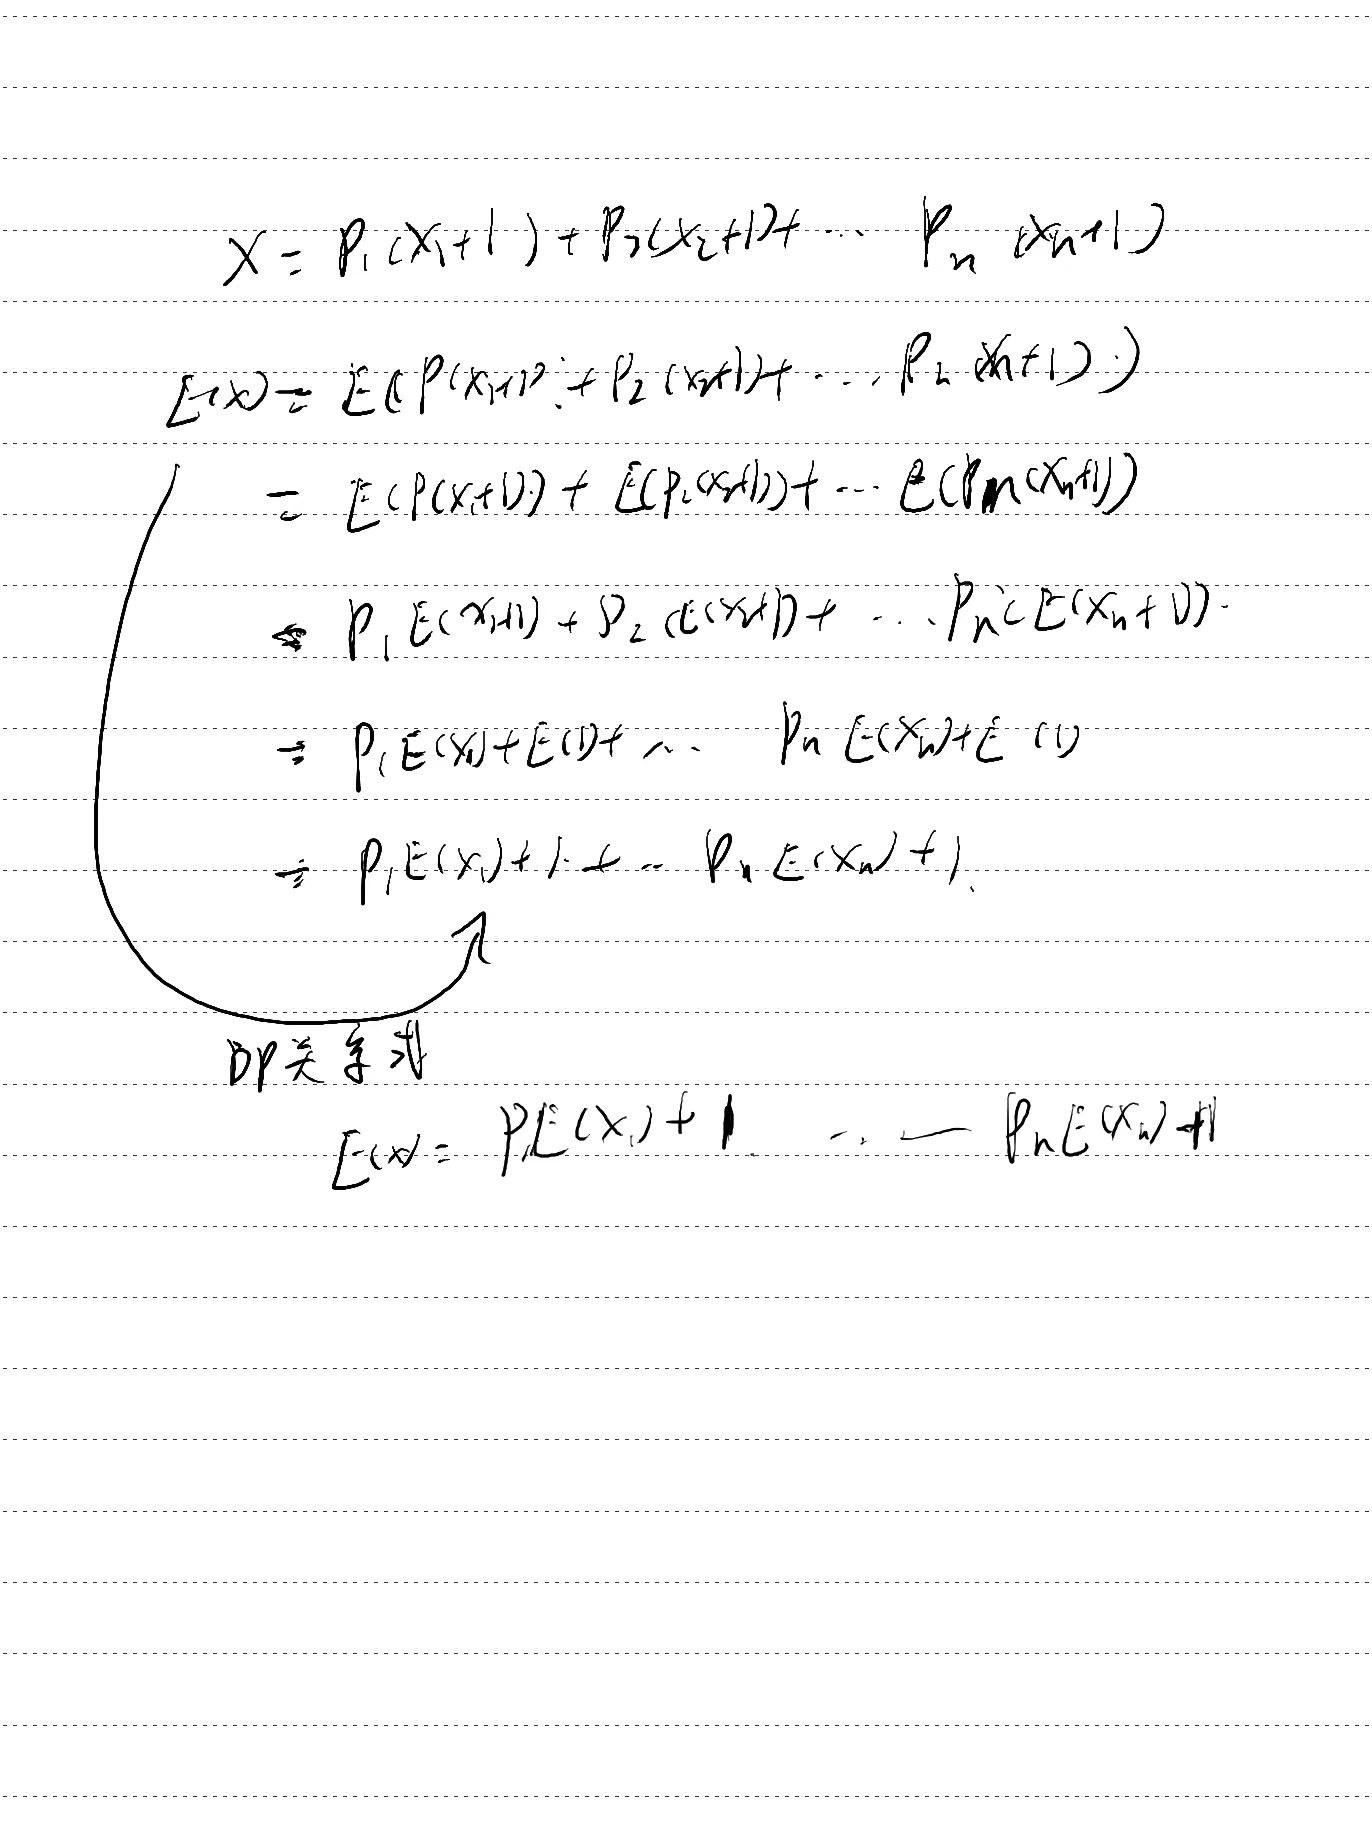 X = P₁(X₁+1) + P₂(X₂+1)+ ... Pₙ (Xₙ+1)
E(X) = E(P(X₁+1) + P₂(X₂+1)+ .... Pₙ (Xₙ+1))
= E(P(X₁+1)) + E(P₂(X₂+1))+ ... E(Pₙ(Xₙ+1))
= P₁E(X₁+1) + P₂(E(X₂+1)+ ....Pₙ(E(Xₙ+1)).
= P₁E(X₁)+E(1)+ ... Pₙ E(Xₙ)+E(1)
= P₁E(X₁)+1+ .. Pₙ E(Xₙ)+1.
DP关系式
E(X)= P₁E(X₁)+1 ... — PₙE(Xₙ)+1